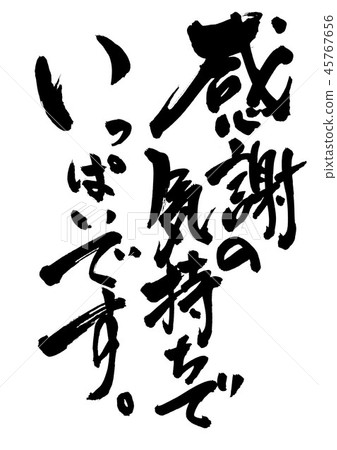 感謝の
気持ちで
いっぱいです。
PIXTA
45767656